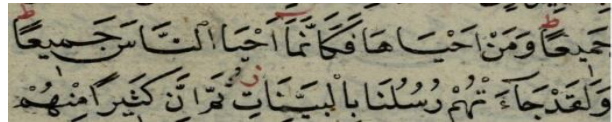 جَمِيعًا وَمَنْ اَحْيَاهَا فَكَاَنَّمَا اَحْيَا النَّاسَ جَمِيعًا
وَلَقَدْ جَاءَتْهُمْ رُسُلُنَا بِالْبَيِّنَاتِ ثُمَّ اِنَّ كَثِيرًا مِنْهُمْ